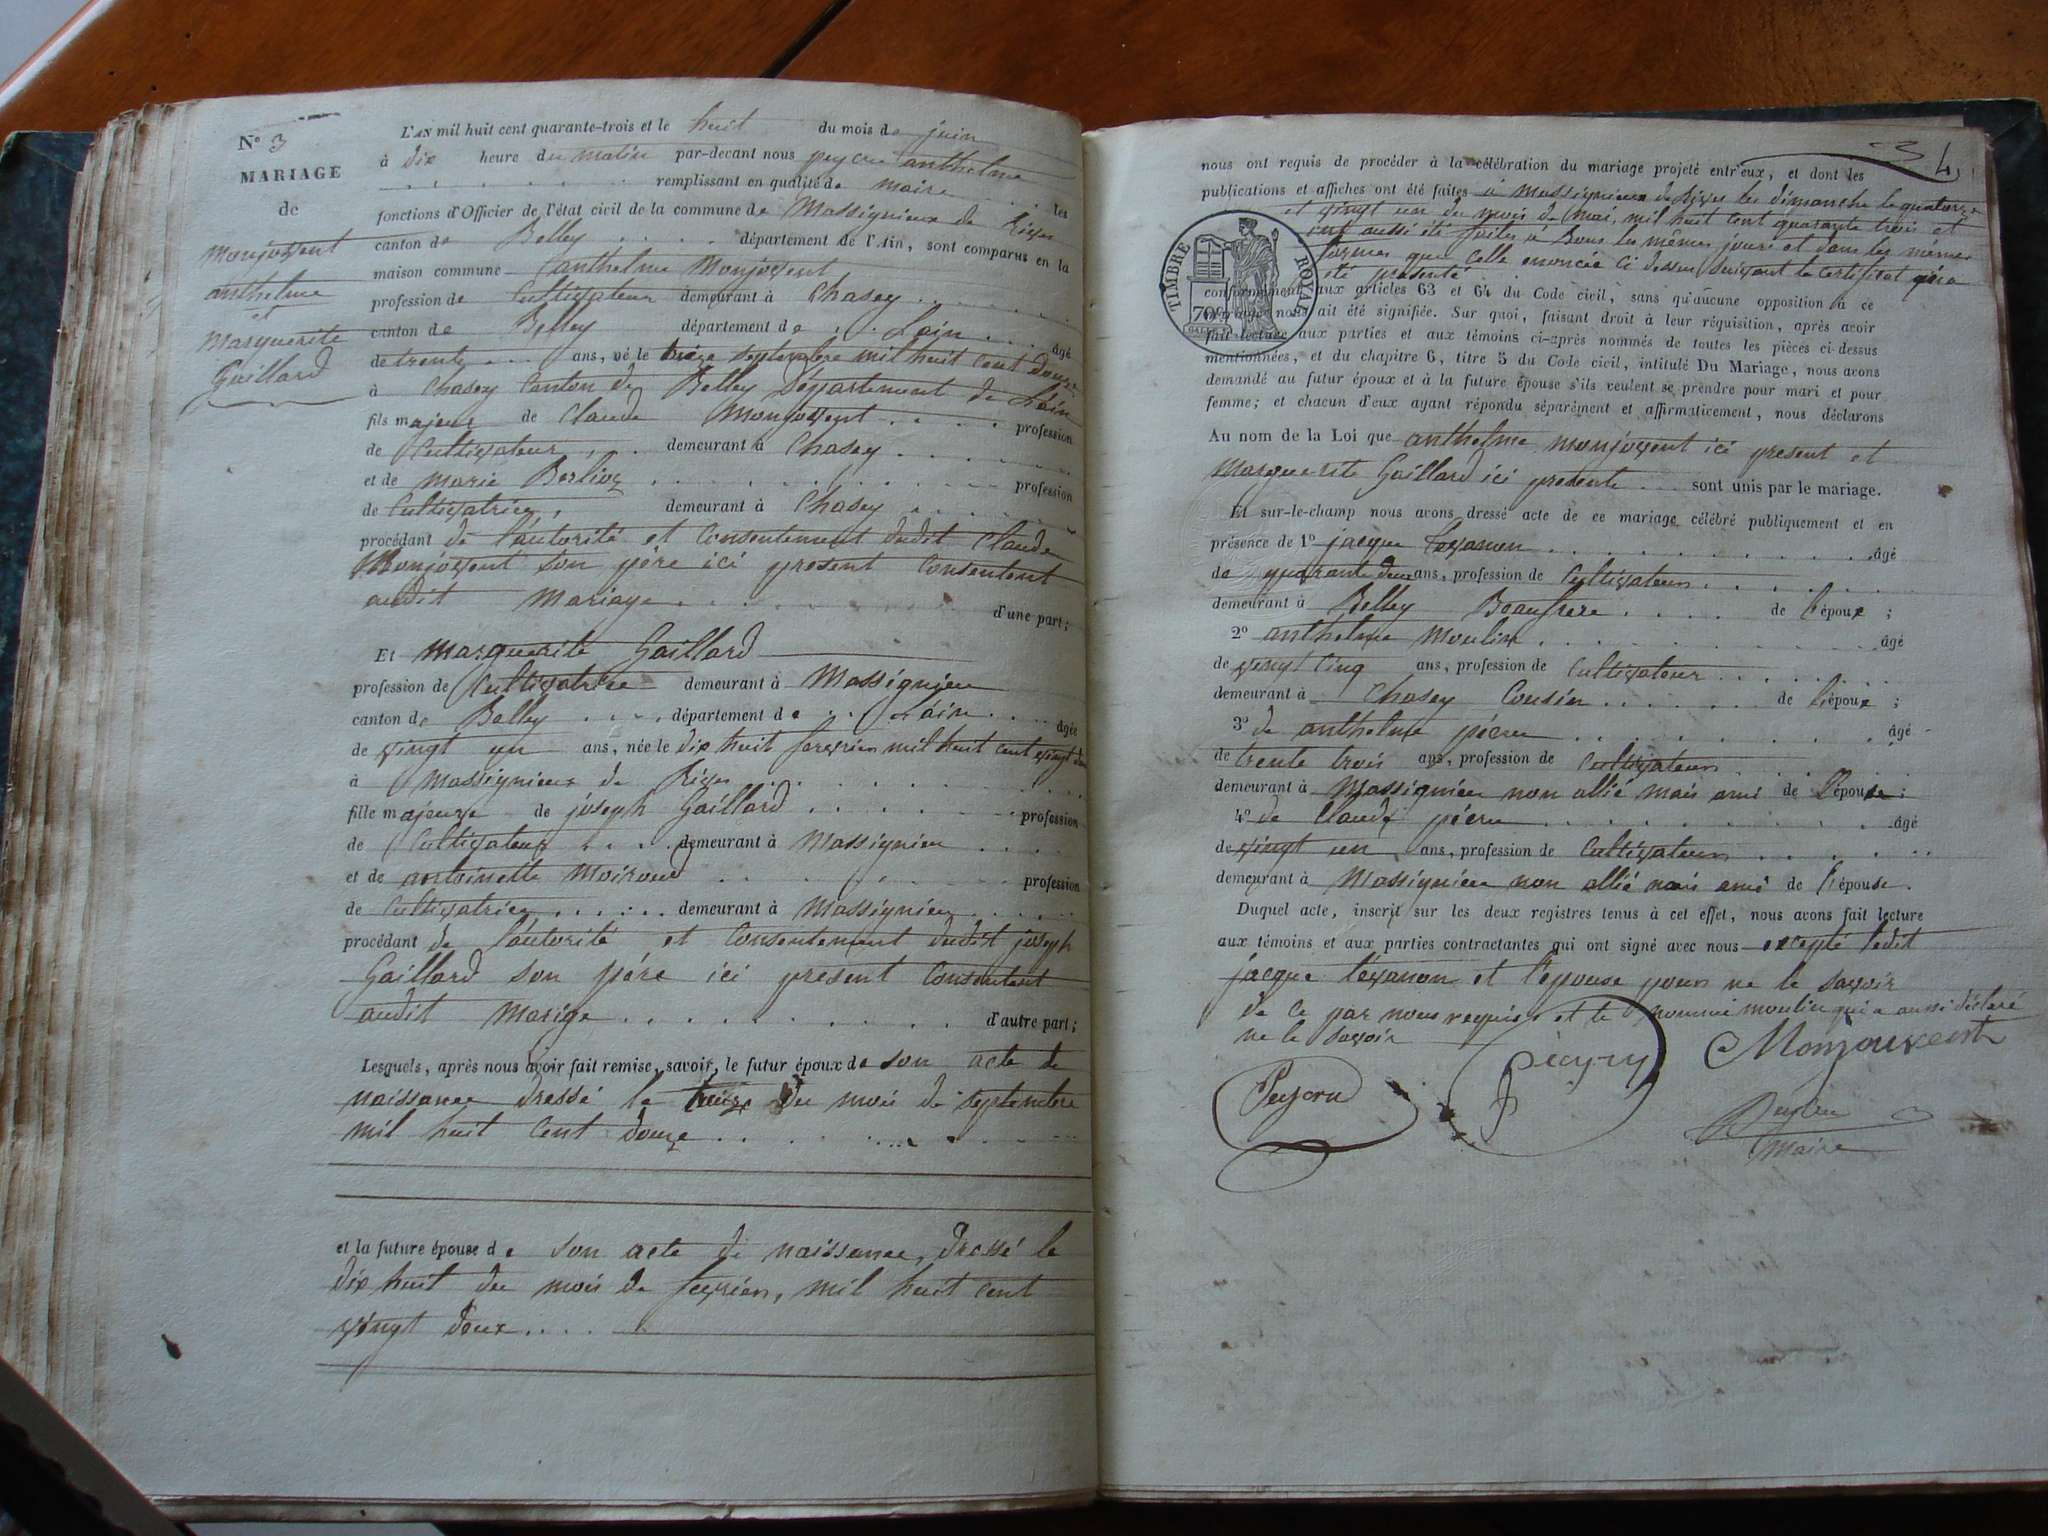 N° 3
MARIAGE
de
monjovent
anthelme
et
marguerite
Gaillard
L'AN mil huit cent quarante-trois et le huit du mois de juin
à dix heure du matin par-devant nous peycru anthelme
remplissant en qualité de maire les
fonctions d'Officier de l'état civil de la commune de Massignieux de Rives
canton de Belley département de l'Ain, sont comparus en la
maison commune anthelme Monjovent
profession de Cultivateur demeurant à Chasey
canton de Belley département de Lain âgé
de trente ans, né le treize septembre mil huit cent douze
à Chasey Canton de Belley Département de Lain
fils majeur de Claude Monjovent profession
de Cultivateur, demeurant à Chasey
et de marie Berlioz profession
de Cultivatrice, demeurant à Chasey
procédant de l'autorité et Consentement dudit Claude
Monjovent son pére ici present Consentent
audit Mariage d'une part;
Et marguerite Gaillard
profession de Cultivatrice demeurant à Massignieu
canton de Belley département de Lain âgée
de vingt un ans, née le dix huit fevrier mil huit cent vingt deux
à Massignieux de Rives
fille majeure de joseph Gaillard profession
de Cultivateur demeurant à Massignieu
et de antoinette Moiroud profession
de Cultivatrice demeurant à Massignieu
procédant de l'autorité et Consentement dudit joseph
Gaillard son pére ici present Consentant
audit Marige d'autre part;
Lesquels, après nous avoir fait remise, savoir, le futur époux de son acte de
naissance dressé le treize du mois de septembre
mil huit cent douze
et la future épouse de son acte de naissance, dressé le
dix huit du mois de fevrier, mil huit cent
vingt deux
4
nous ont requis de procéder à la célébration du mariage projeté entr'eux, et dont les
publications et affiches ont été faites à Massignieux de Rives les dimanche le quatorze
et vingt un du mois de mai, mil huit cent quarante trois et
ont aussi été faites à Bons les mêmes jours et dans les mêmes
formes que celle enoncée ci dessus suivant le certificat qui a
été presenté
conformément aux articles 63 et 64 du Code civil, sans qu'aucune opposition à ce
mariage nous ait été signifiée. Sur quoi, faisant droit à leur réquisition, après avoir
fait lecture aux parties et aux témoins ci-après nommés de toutes les pièces ci-dessus
mentionnées, et du chapitre 6, titre 5 du Code civil, intitulé Du Mariage, nous avons
demandé au futur époux et à la future épouse s'ils veulent se prendre pour mari et pour
femme; et chacun d'eux ayant répondu séparément et affirmativement, nous déclarons
TIMBRE ROYAL
70
Au nom de la Loi que anthelme monjovent ici present et
marguerite Gaillard ici presente sont unis par le mariage.
Et sur-le-champ nous avons dressé acte de ce mariage célébré publiquement et en
présence de 1° jacque tevanon âgé
de quarante deux ans, profession de Cultivateur
demeurant à Belley Beaufrere de l'époux;
2° anthelme Moulin âgé
de vingt Cinq ans, profession de Cultivateur
demeurant à Chasey Cousin de l'époux;
3° de anthelme pécru âgé
de trente trois ans, profession de Cultivateur
demeurant à Massignieu non allié mais ami de l'épouse;
4° de Claude pécru âgé
de vingt un ans, profession de Cultivateur
demeurant à Massignieu non allié mais ami de l'épouse.
Duquel acte, inscrit sur les deux registres tenus à cet effet, nous avons fait lecture
aux témoins et aux parties contractantes qui ont signé avec nous excepté ledit
jacque tévanon et l'épouse pour ne le savoir
de ce par nous requis et le nommé moulin qui a aussi déclaré
ne le savoir
Monjouvent
Peycru
Peycru
Maire